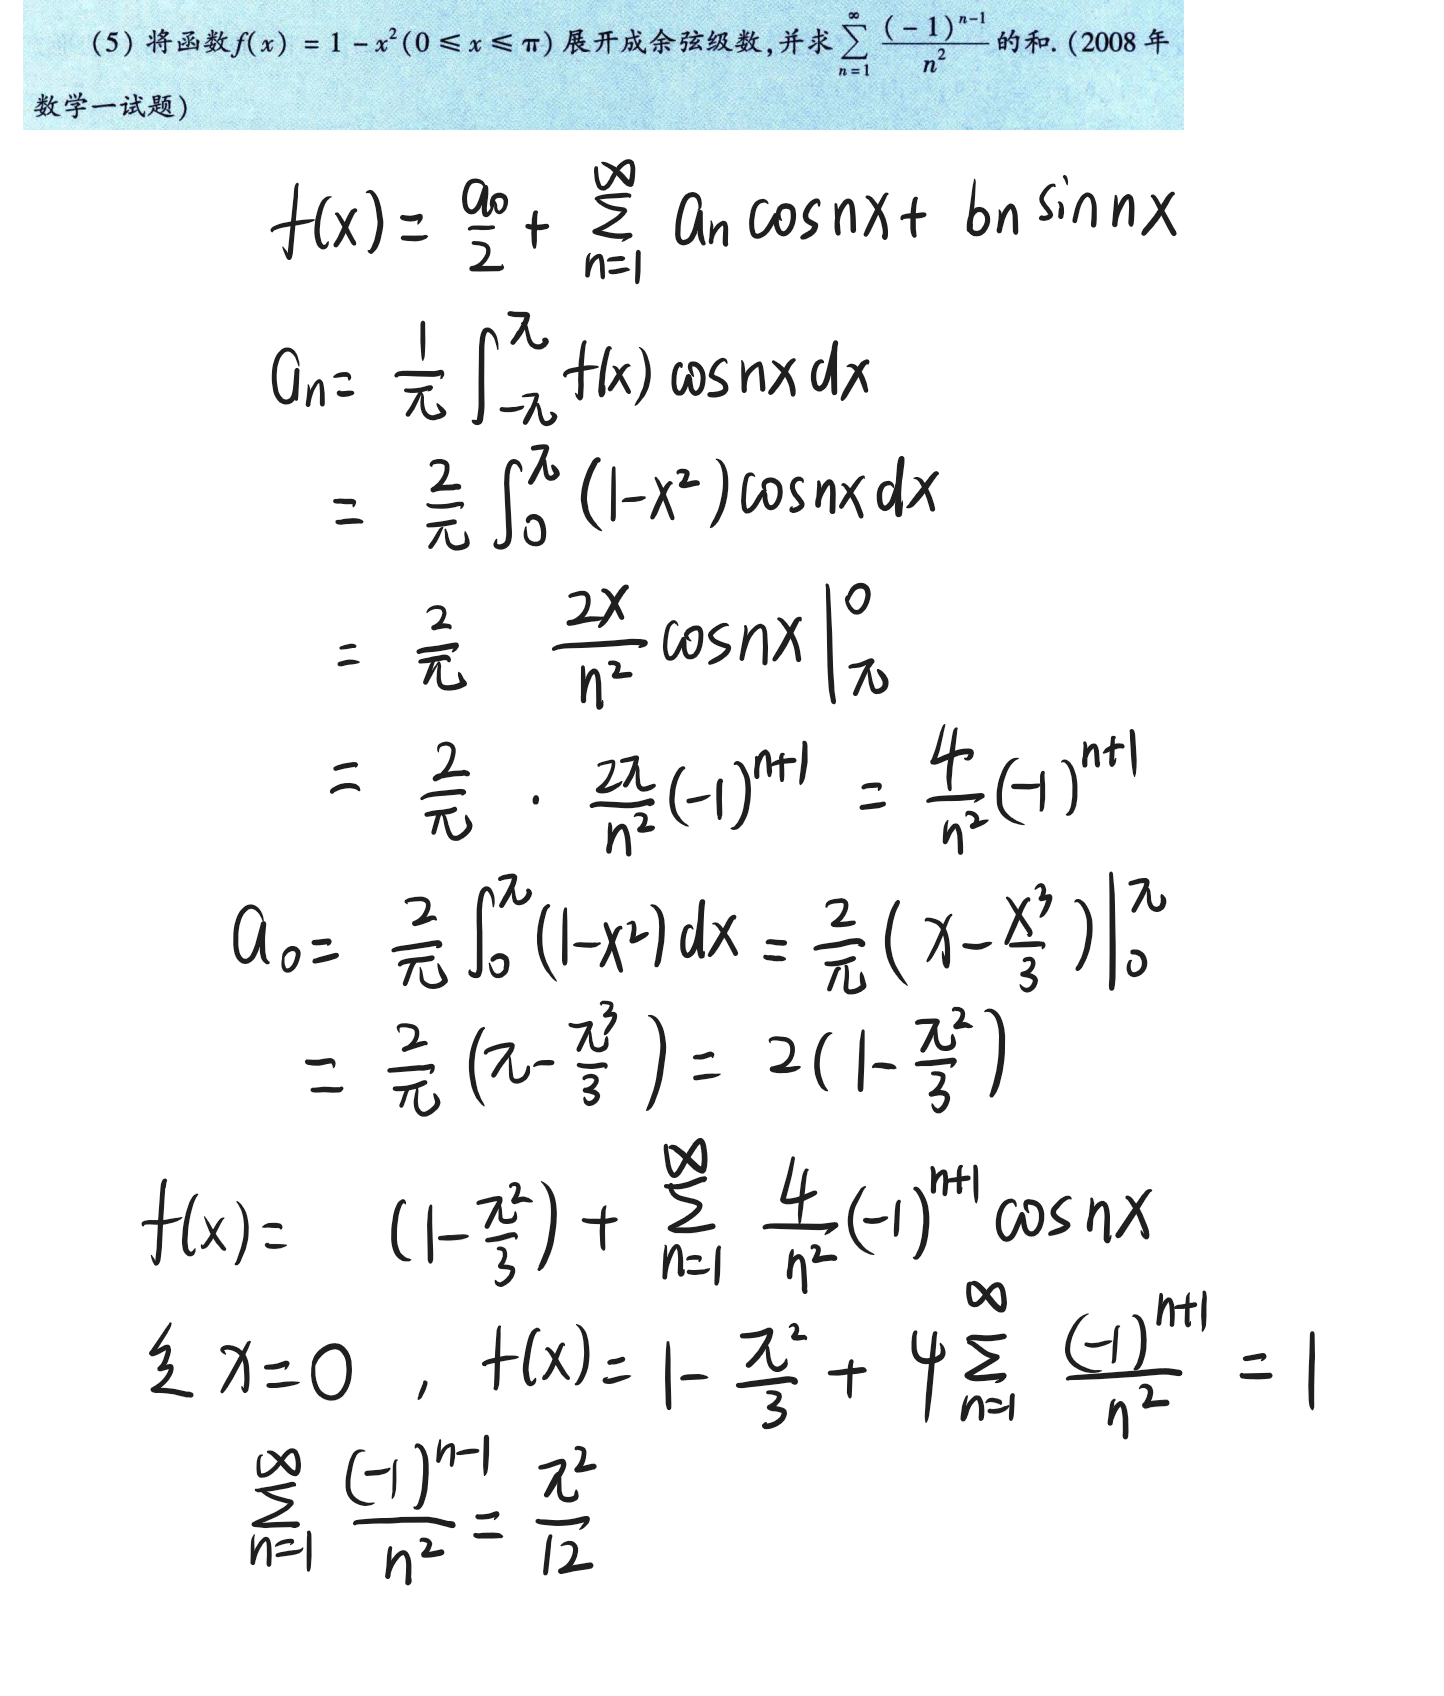 (5) 将函数f(x) = 1 - x²(0 ≤ x ≤ π) 展开成余弦级数,并求 ∑_{n=1}^{∞} (-1)^{n-1}/n² 的和. (2008 年
数学一试题)
f(x) = a₀/2 + ∑_{n=1}^{∞} an cosnx + bn sin nx
an = 1/π ∫_{-π}^{π} f(x) cosnx dx
= 2/π ∫_0^π (1-x²) cosnx dx
= 2/π 2x/n² cosnx |_π^0
= 2/π · 2π/n² (-1)^{n+1} = 4/n² (-1)^{n+1}
a₀ = 2/π ∫_0^π (1-x²) dx = 2/π (x - x³/3) |_0^π
= 2/π (π - π³/3) = 2(1 - π²/3)
f(x) = (1 - π²/3) + ∑_{n=1}^{∞} 4/n² (-1)^{n+1} cosnx
令 x=0 , f(x) = 1 - π²/3 + 4∑_{n=1}^{∞} (-1)^{n+1}/n² = 1
∑_{n=1}^{∞} (-1)^{n-1}/n² = π²/12